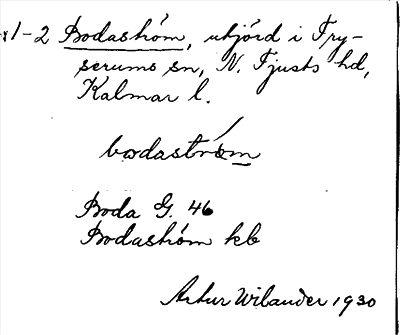 1-2 Bodaström, utjord i Try-
serums sn, N. Tjusts hd,
Kalmar l.
bodaström
Boda G. 46
Bodaström kb
Artur Wilander 1930